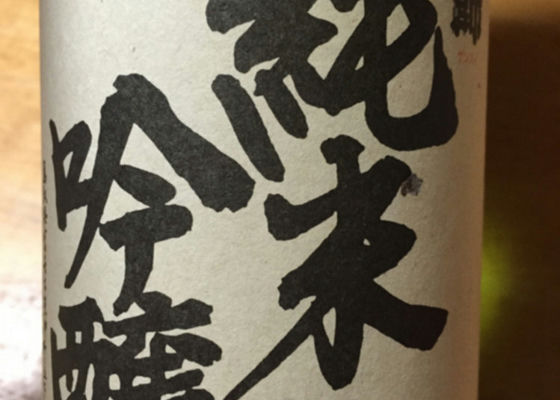 純米
吟醸